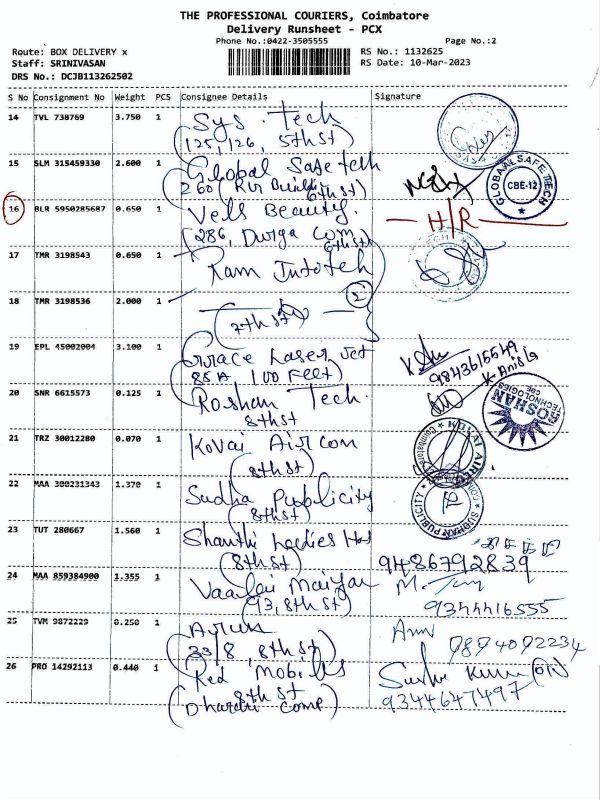 THE PROFESSIONAL COURIERS, Coimbatore
Delivery Runsheet - PCX
Phone No.:0422-3505555
Page No.:2
Route: BOX DELIVERY x
RS No.: 1132625
Staff: SRINIVASAN
RS Date: 10-Mar-2023
DRS No.: DCJB113262502
S No Consignment No Weight PCS Consignee Details Signature
14 TVL 738769 3.750 1 Sys. Tech
(125, 126, 5th st)
15 SLM 315459330 2.600 1 Global Safe tech
260 (
6th st)
GLOBAAL SAFE TECH
CBE-12
16 BLR 5950285687 0.650 1 Vels Beauty.
H/R
(286, Durga Com
6th st)
17 TMR 3198543 0.650 1 Ram Infoteh
18 TMR 3198536 2.000 1
(7th st) 2
19 EPL 45002004 3.100 1 Grrace Laser Jet
85 A 100 Feet)
9843615549
20 SNR 6615573 0.125 1 Roshan Tech.
8th st
ROSHAN TECHNOLOGIES CBE
21 TRZ 30012280 0.070 1 Kovai Aircon
(8th st)
KOVAI AIRCON
22 MAA 300231343 1.370 1 Sudha Publicity
(8th st)
PUBLICITY
23 TUT 280667 1.560 1 Shanthi Ladies Hos
(8th st)
9486792839
24 MAA 859384900 1.355 1 Vaalai Maiyam
(93, 8th st)
9344416555
25 TVM 9872229 0.250 1
33/8, 8th st)
9894092234
26 PRO 14292113 0.440 1 Red Mobiles
8th st
9344647497